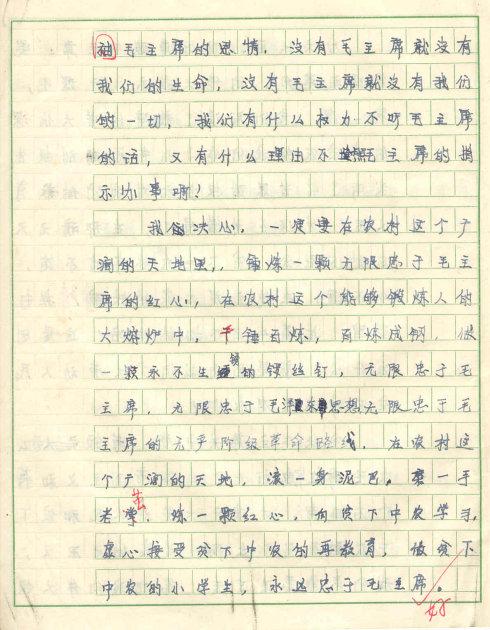 袖毛主席的恩情，没有毛主席就没有
我们的生命，没有毛主席就没有我们
的一切，我们有什么权力不听毛主席
的话，又有什么理由不按照毛主席的指
示办事啊！
我们决心，一定要在农村这个广
阔的天地里，锤炼一颗无限忠于毛主
席的红心，在农村这个能够锻炼人的
大熔炉中，千锤百炼，百炼成钢，做
一颗永不生锈的锣丝钉，无限忠于毛
主席，无限忠于毛泽东思想无限忠于毛
主席的无产阶级革命路线，在农村这
个广阔的天地，滚一身泥巴。磨一手
老茧，炼一颗红心，向贫下中农学习，
虚心接受贫下中农的再教育，做贫下
中农的小学生，永远忠于毛主席。
好